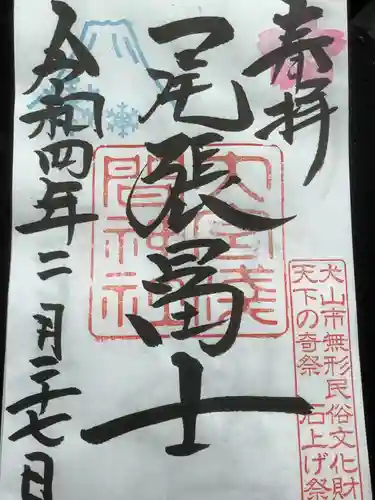 奉拝
犬山市無形民俗文化財
天下の奇祭 石上げ祭
大宮浅
間神社
尾張冨士
令和四年二月二十七日